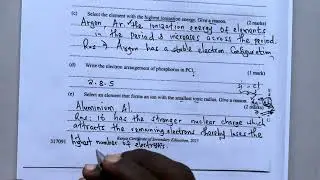 (c) Select the element with the highest ionization energy. Give a reason. (2 marks)
Argon Ar. the ionization energy of elements
in the period 3 increases across the period.
Rsn: Argon has a stable electron Configuration
(d) Write the electron arrangement of phosphorus in PCl3. (1 mark)
2.8.5
(e) Select an element that forms an ion with the smallest ionic radius. Give a reason. (2 marks)
Aluminium, Al.
Rsn: It has the stronger nuclear charge which
attracts the remaining electrons thereby loses the
Kenya Certificate of Secondary Education, 2023
317091 highest number of electrons.